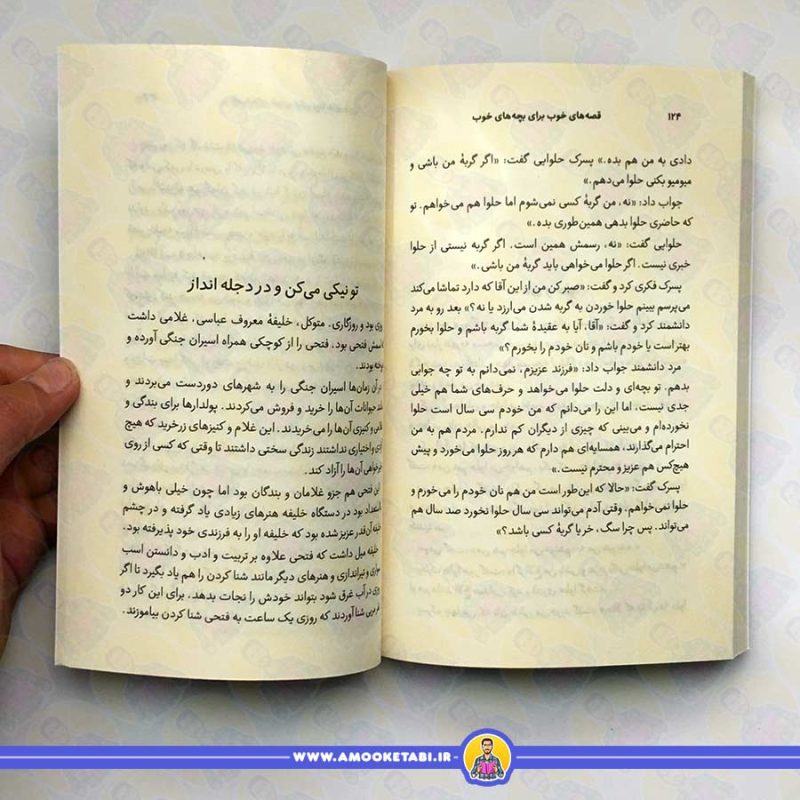 ۱۲۴
قصه‌های خوب برای بچه‌های خوب
دادی به من هم بده.» پسرک حلوایی گفت: «اگر گربهٔ من باشی و
میومیو بکنی حلوا می‌دهم.»
جواب داد: «نه، من گربهٔ کسی نمی‌شوم اما حلوا هم می‌خواهم. تو
که حاضری حلوا بدهی همین‌طوری بده.»
حلوایی گفت: «نه، رسمش همین است. اگر گربه نیستی از حلوا
خبری نیست. اگر حلوا می‌خواهی باید گربهٔ من باشی.»
پسرک فکری کرد و گفت: «صبر کن من از این آقا که دارد تماشا می‌کند
می‌پرسم ببینم حلوا خوردن به گربه شدن می‌ارزد یا نه؟» بعد رو به مرد
دانشمند کرد و گفت: «آقا، آیا به عقیدهٔ شما گربه باشم و حلوا بخورم
بهتر است یا خودم باشم و نان خودم را بخورم؟»
مرد دانشمند جواب داد: «فرزند عزیزم، نمی‌دانم به تو چه جوابی
بدهم. تو بچه‌ای و دلت حلوا می‌خواهد و حرف‌های شما هم خیلی
جدی نیست، اما این را می‌دانم که من خودم سی سال است حلوا
نخورده‌ام و می‌بینی که چیزی از دیگران کم ندارم. مردم هم به من
احترام می‌گذارند، همسایه‌ای هم دارم که هر روز حلوا می‌خورد و پیش
هیچ‌کس هم عزیز و محترم نیست.»
پسرک گفت: «حالا که این‌طور است من هم نان خودم را می‌خورم و
حلوا نمی‌خواهم. وقتی آدم می‌تواند سی سال حلوا نخورد صد سال هم
می‌تواند. پس چرا سگ، خر یا گربهٔ کسی باشد؟»
تو نیکی می‌کن و در دجله انداز
بود و روزگاری. متوکل، خلیفهٔ معروف عباسی، غلامی داشت
فتحی بود، فتحی را از کوچکی همراه اسیران جنگی آورده و
بودند.
آن زمان‌ها اسیران جنگی را به شهرهای دوردست می‌بردند و
حیوانات آن‌ها را خرید و فروش می‌کردند. پولدارها برای بندگی و
و کنیزی آن‌ها را می‌خریدند. این غلام و کنیزهای زرخرید که هیچ
و اختیاری نداشتند زندگی سختی داشتند تا وقتی که کسی از روی
آن‌ها را آزاد کند.
فتحی هم جزو غلامان و بندگان بود اما چون خیلی باهوش و
بود در دستگاه خلیفه هنرهای زیادی یاد گرفته و در چشم
آن‌قدر عزیز شده بود که خلیفه او را به فرزندی خود پذیرفته بود.
خلیفه میل داشت که فتحی علاوه بر تربیت و ادب و دانستن اسب
و تیراندازی و هنرهای دیگر مانند شنا کردن را هم یاد بگیرد تا اگر
در آب غرق شود بتواند خودش را نجات بدهد. برای این کار دو
شنا آوردند که روزی یک ساعت به فتحی شنا کردن بیاموزند.
WWW.AMOOKETABI.IR